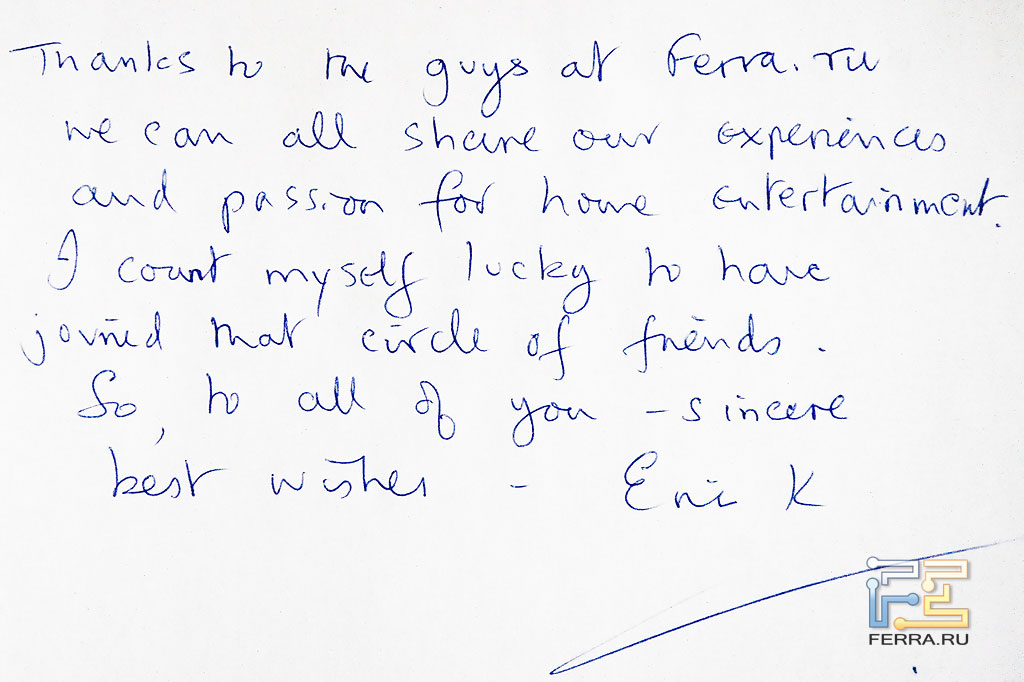 Thanks to the guys at Ferra.ru
we can all share our experiences
and passion for home entertainment.
I count myself lucky to have
joined that circle of friends.
So, to all of you - sincere
best wishes - Eric K
FERRA.RU